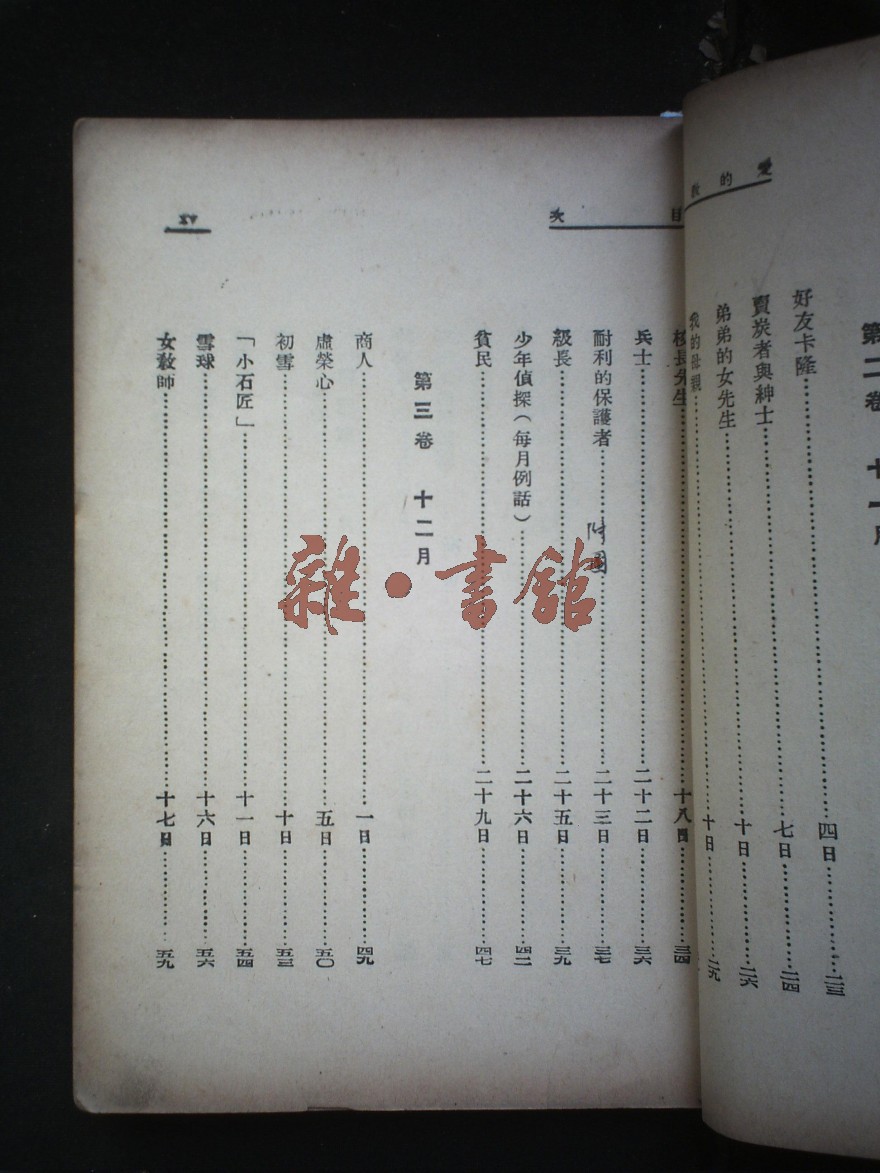 愛的教
第二卷 十一月
好友卡隆……四日……二三
賣炭者與紳士……七日……二四
弟弟的女先生……十日……二六
我的母親……十日……二九
目次
校長先生……十八日……三四
兵士……二十二日……三六
耐利的保護者……二十三日……三七
級長……二十五日……三九
少年偵探(每月例話)……二十六日……四二
貧民……二十九日……四七
第三卷 十二月
商人……一日……四九
虛榮心……五日……五〇
初雪……十日……五三
「小石匠」……十一日……五四
雪球……十六日……五六
女教師……十七日……五九
xv
雜·書館